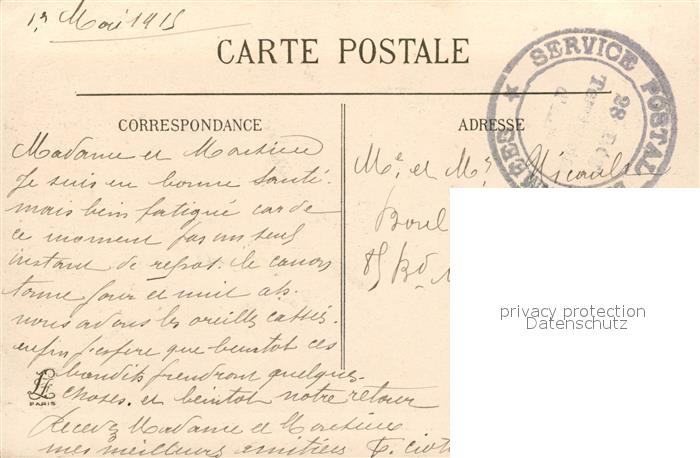 1r Mai 1915
CARTE POSTALE
SERVICE POSTAL
28
CORRESPONDANCE
ADRESSE
Madame et Monsieur
Je suis en bonne santé.
mais bien fatigué car de
ce moment pas un seul
instant de repos. le canon
tonne jour et nuit ah.
nous avons les oreilles cassés.
enfin j'espere que bientot ces
bandits prendront quelques
choses. et bientot notre retour
Recevez Madame et Monsieur
mes meilleurs amitiées
Me. et Mr
85 Bd.
LL
PARIS
privacy protection
Datenschutz